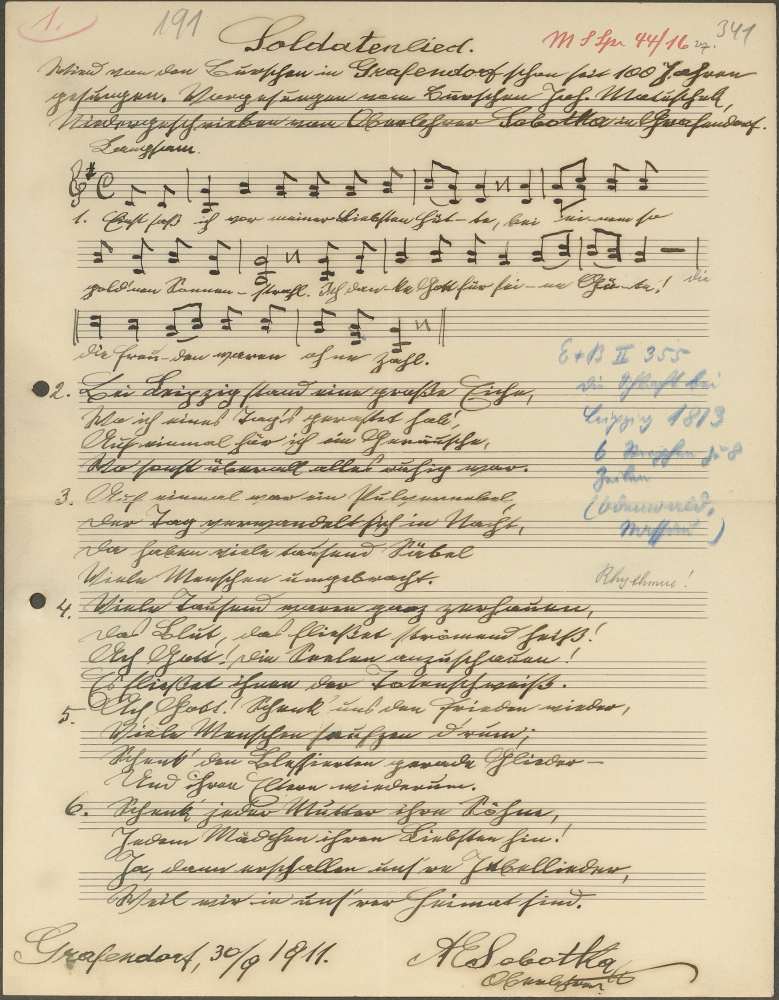 1.
191
M S Spr 44/16 27.
341
Soldatenlied.
Wird von den Burschen in Grafendorf schon seit 100 Jahren
gesungen. Vorgesungen vom Burschen Joh. Matuschek,
Niedergeschrieben von Oberlehrer Sobotka in Grafendorf.
Langsam.
1. Einst saß ich vor meiner Liebsten Hüt-te, bei ei-nem so
gold'nen Sonnen-strahl. Ich dan-ke Gott für sei-ne Gü-te! die
die Freu-den waren ohne Zahl.
E+B II 355
die Schlacht bei
Leipzig 1813
6 Strophen zu 8
Zeilen
(Odenwald,
Nassau)
2. Bei Leipzig stand eine große Eiche,
Wo ich eines Tag's gerastet hab',
Auf einmal hör' ich ein Geräusche,
Wo sonst überall alles ruhig war.
3. Auf einmal war ein Pulvernebel,
Der Tag verwandelt sich in Nacht,
Da haben viele tausend Säbel
Viele Menschen umgebracht.
Rhythmus!
4. Viele Tausend waren ganz zerhauen,
Das Blut, das fließet strömend heiß!
Ach Gott! die Seelen anzuschauen!
Es fließet ihnen der Totenschweiß.
5. Ach Gott! Schenk' uns den Frieden wieder,
Viele Menschen seufzen drum;
Schenk' den Blessierten gerade Glieder –
Und ihren Eltern wiederum.
6. Schenk' jeder Mutter ihre Söhne,
Jedem Mädchen ihren Liebsten hin!
Ja, dann erschallen uns're Jubellieder,
Weil wir in uns'rer Heimat sind.
Grafendorf, 30/9 1911.
AESobotka
Oberlehrer